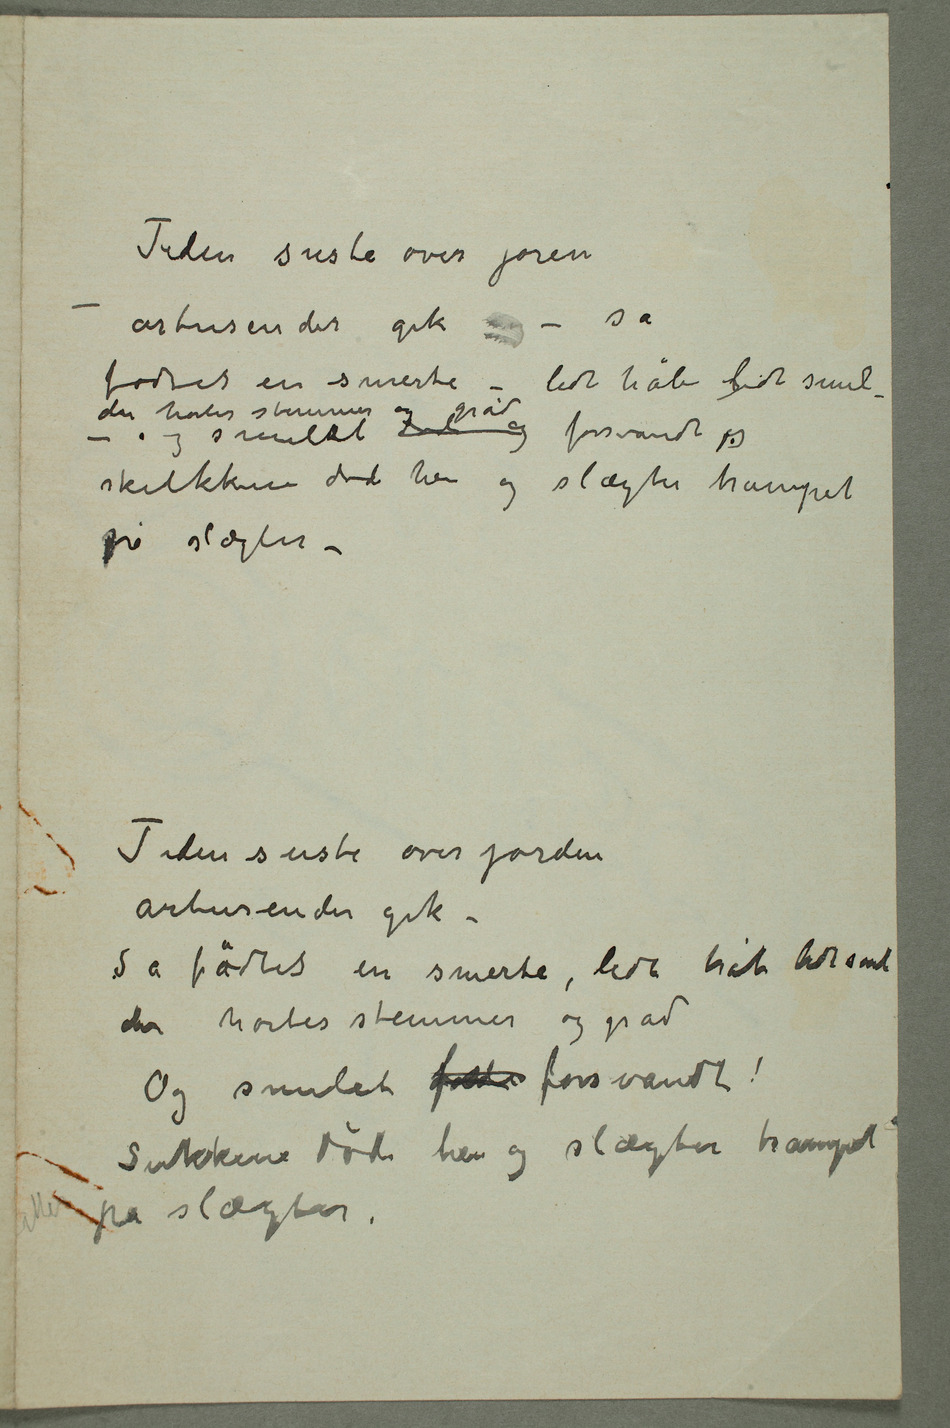 Tiden suste over joren
– artusender gik – så
fødtes en smerte – lidt håb lidt smil –
der hørtes stemmer og gråd
– og smilet og forsvandt og
skikkene død hen og slægter trampet
på slægter –
Tiden suste over jorden
artusender gik –
Så födtes en smerte, lidt håb lidt smil
der hørtes stemmer og gråd
Og smilet forsvandt !
Sukkene döde hen og slægter trampet
på slægter.